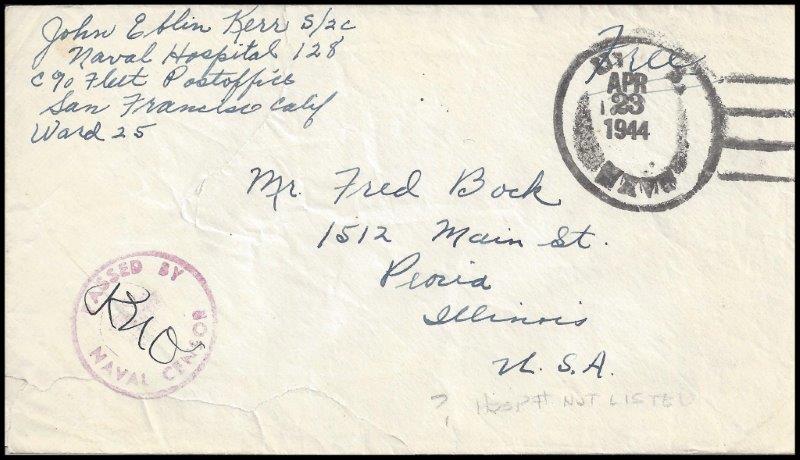 John Eblin Kerr S/2c
Naval Hospital 128
c/o Fleet Postoffice
San Francisco Calif
Ward 25
Free
APR
23
1944
NAVY
Mr. Fred Bock
1512 Main St.
Peoria
Illinois
U.S.A.
PASSED BY
NAVAL CENSOR
? HOSP# NOT LISTED